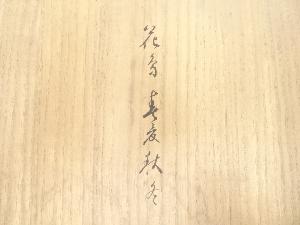 花鳥春夏秋冬